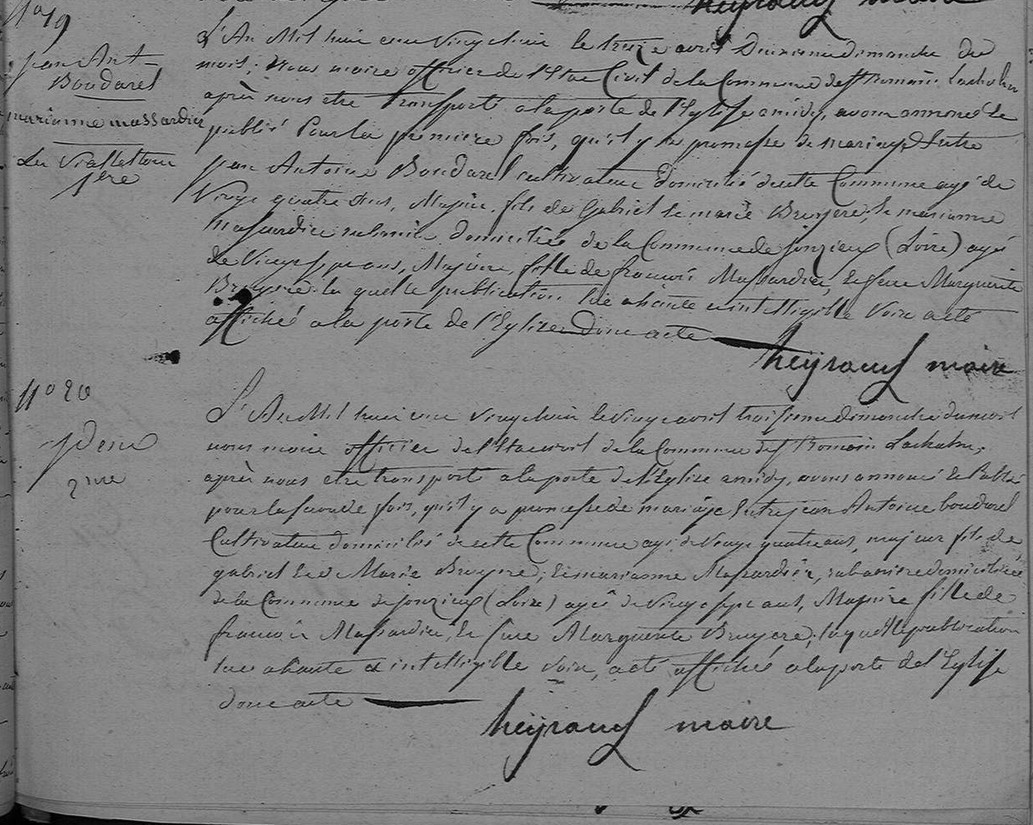 heyraud maire
N° 19
jean Ant-
Boudarel
marianne massardier
La Vialletone
1ere
L'An Mil huit cent Vingt huit le treize avril Deuxieme dimanche du
mois, Nous maire officier de l'Etat Civil de la Commune de St Romain Lachalm
après nous etre transporté a la porte de l'Eglise a midy, avons annoncé et
publié Pour la premiere fois, qu'il y a promesse de mariage Entre
jean Antoine Boudarel cultivateur domicilié de cette Commune agé de
Vingt quatre Ans, Majeur, fils de Gabriel et marie Bruyere, et marianne
Massardier rubanière domiciliée de la Commune de jonzieux (Loire) agé
de Vingt sept ans, Majeure, fille de francois Massardier, et feue Marguerite
Bruyere la quelle publication lue a haute et intelligible Voix acté
affiché a la porte de l'Eglise Donc acte
heyraud maire
N° 20
idem
2me
L'An Mil huit cent Vingt huit le Vingt avril troisieme dimanche du mois
nous maire officier de l'Etat civil de la Commune de St Romain Lachalm,
après nous etre transporté a la porte de l'Eglise a midy, avons annoncé et Publié
pour la seconde fois, qu'il y a promesse de mariage Entre jean Antoine boudarel
Cultivateur domicilié de cette Commune agé de Vingt quatre ans, majeur fils de
gabriel et Marie Bruyere, et marianne Massardier, rubanière domiciliée
de la Commune de jonzieux (Loire) agé de Vingt sept ans, Majeure fille de
francois Massardier, et feue Marguerite Bruyere, laquelle publication
lue a haute et intelligible Voix, acté affiché a la porte de l'Eglise
donc acte
heyraud maire